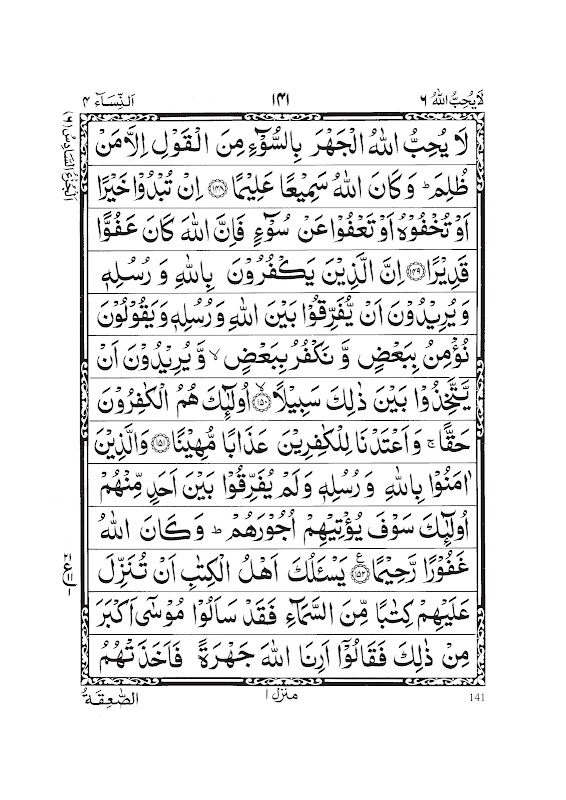 لَا يُحِبُّ اللّٰهُ ٦
١٤١
اَلنِّسَآء ٤
اَلْجُزْءُ السَّادِسُ (٦)
لَا يُحِبُّ اللّٰهُ الْجَهْرَ بِالسُّوْٓءِ مِنَ الْقَوْلِ اِلَّا مَنْ
ظُلِمَ ؕ وَ كَانَ اللّٰهُ سَمِيْعًا عَلِيْمًا ﴿١٤٨﴾ اِنْ تُبْدُوْا خَيْرًا
اَوْ تُخْفُوْهُ اَوْ تَعْفُوْا عَنْ سُوْٓءٍ فَاِنَّ اللّٰهَ كَانَ عَفُوًّا
قَدِيْرًا ﴿١٤٩﴾ اِنَّ الَّذِيْنَ يَكْفُرُوْنَ بِاللّٰهِ وَ رُسُلِهٖ
وَ يُرِيْدُوْنَ اَنْ يُّفَرِّقُوْا بَيْنَ اللّٰهِ وَ رُسُلِهٖ وَ يَقُوْلُوْنَ
نُؤْمِنُ بِبَعْضٍ وَّ نَكْفُرُ بِبَعْضٍ ۙ وَّ يُرِيْدُوْنَ اَنْ
يَّتَّخِذُوْا بَيْنَ ذٰلِكَ سَبِيْلًا ۙ﴿١٥٠﴾ اُولٰٓئِكَ هُمُ الْكٰفِرُوْنَ
حَقًّا ۚ وَ اَعْتَدْنَا لِلْكٰفِرِيْنَ عَذَابًا مُّهِيْنًا ﴿١٥١﴾ وَ الَّذِيْنَ
اٰمَنُوْا بِاللّٰهِ وَ رُسُلِهٖ وَ لَمْ يُفَرِّقُوْا بَيْنَ اَحَدٍ مِّنْهُمْ
اُولٰٓئِكَ سَوْفَ يُؤْتِيْهِمْ اُجُوْرَهُمْ ؕ وَ كَانَ اللّٰهُ
غَفُوْرًا رَّحِيْمًا ﴿١٥٢﴾ ع يَسْـَٔلُكَ اَهْلُ الْكِتٰبِ اَنْ تُنَزِّلَ
عَلَيْهِمْ كِتٰبًا مِّنَ السَّمَآءِ فَقَدْ سَاَلُوْا مُوْسٰٓى اَكْبَرَ
مِنْ ذٰلِكَ فَقَالُوْٓا اَرِنَا اللّٰهَ جَهْرَةً فَاَخَذَتْهُمُ
منزل ١
الصّٰعِقَةُ
141